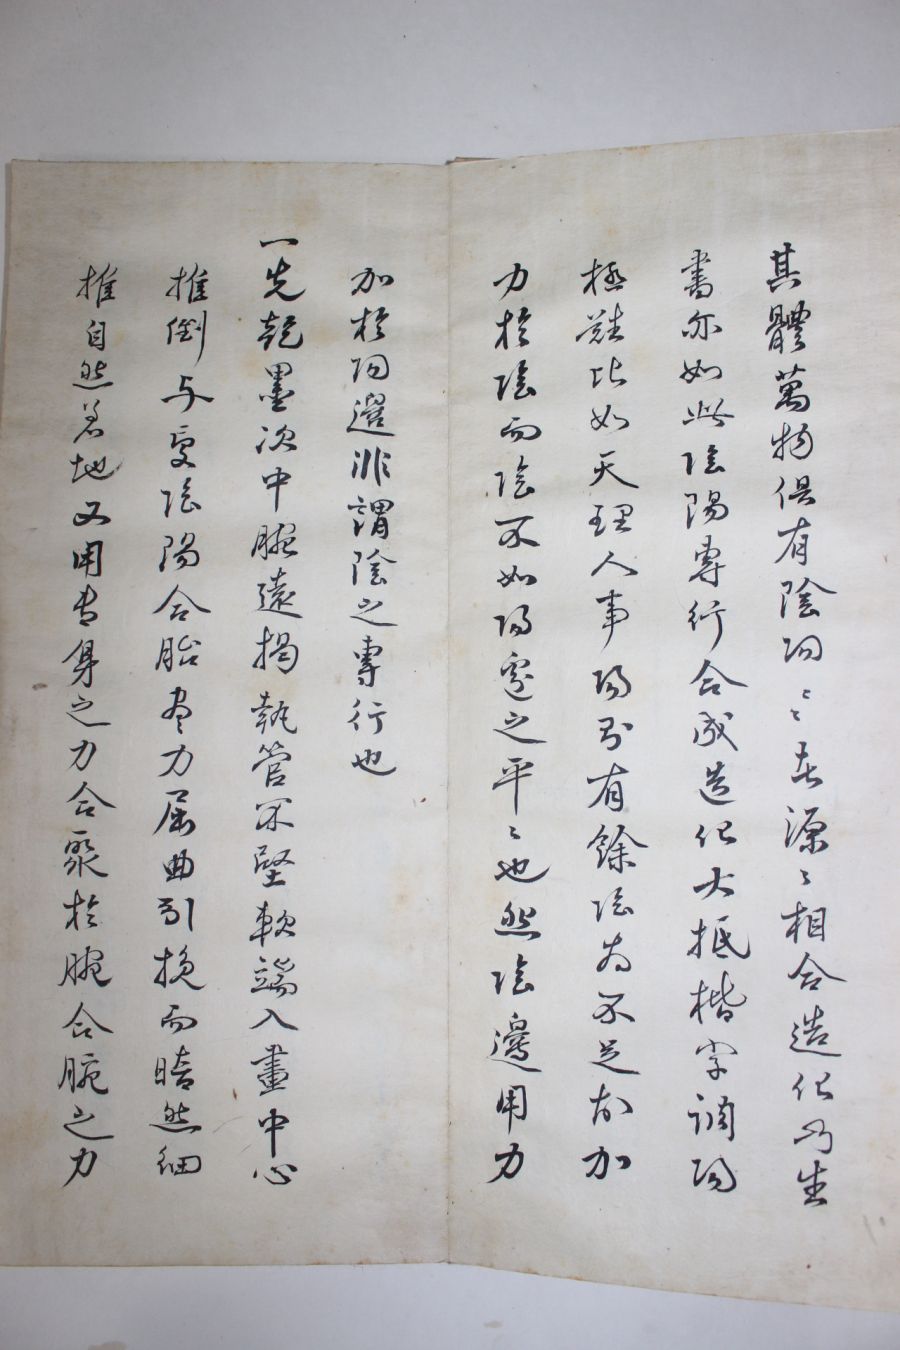 其體萬物俱有陰陽〻〻之源〻相合造化乃生
書亦如此陰陽專行合成造化大抵楷字調陽
極難比如天理人事陽則有餘陰爲不足故加
力於陰而陰不如陽邊之平〻也然陰邊用力
加於陽邊非謂陰之專行也
一先乾墨次中腕遠揭執管不堅軟端入畫中心
推倒與受陰陽合胎盡力屈曲引換而暗然細
推自然着地又用吉身之力合聚於腕合腕之力